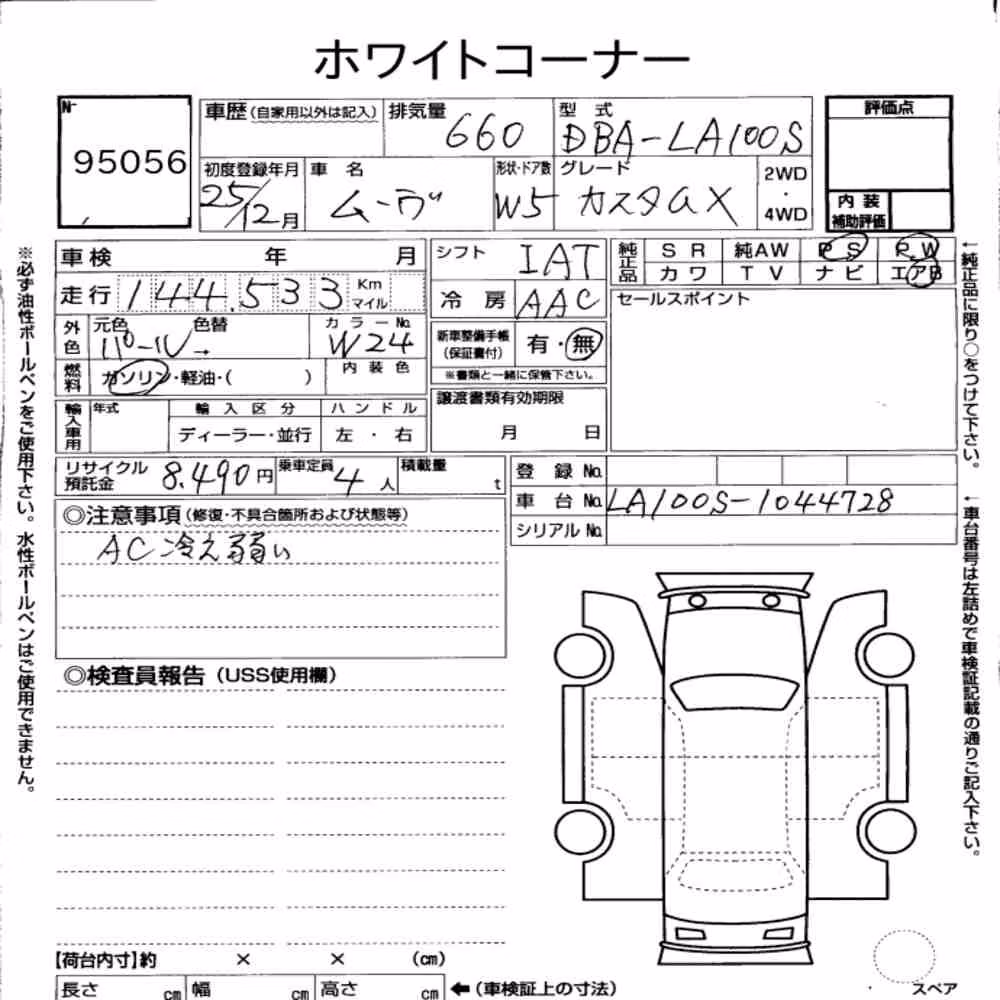 ホワイトコーナー
N-
95056
車歴(自家用以外は記入)
排気量
660
型 式
DBA-LA100S
評価点
初度登録年月
25/12月
車 名
ムーヴ
形状・ドア数
W5
グレード
カスタムX
2WD
・
4WD
内 装
補助評価
車検 年 月
シフト
IAT
純正品
S R 純AW P S P.W
カワ T V ナビ エアB
走行 144,533 Km
マイル
冷 房 AAC
セールスポイント
外色
元色 色替
パール→
カラーNo.
W24
新車整備手帳
(保証書付)
有・無
※書類と一緒に保管下さい。
燃料
ガソリン・軽油・( )
内 装 色
譲渡書類有効期限
月 日
輸入車用
年式
輸 入 区 分
ハ ン ド ル
ディーラー・並行
左 ・ 右
リサイクル
預託金
8.490円
乗車定員
4人
積載量
t
登 録 No.
車 台 No. LA100S-1044728
シリアル No.
◎注意事項(修復・不具合箇所および状態等)
AC 冷え弱い
◎検査員報告(USS使用欄)
【荷台内寸】約 × × (cm)
長さ cm 幅 cm 高さ cm
←(車検証上の寸法)
スペア
※必ず油性ボールペンをご使用下さい。水性ボールペンはご使用できません。
←純正品に限り○をつけて下さい。
←車台番号は左詰めで車検証記載の通りご記入下さい。